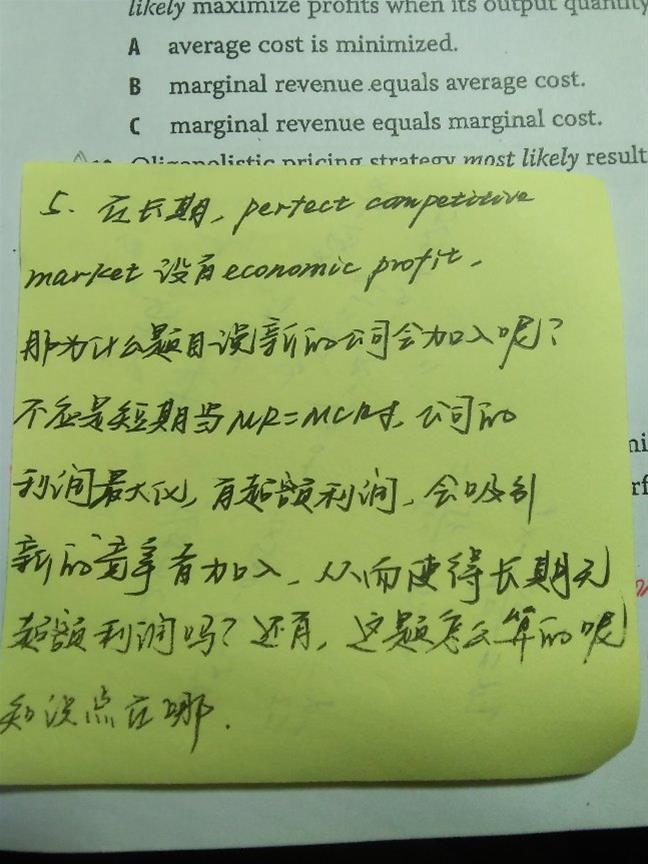 likely maximize profits when its output quantity
A average cost is minimized.
B marginal revenue equals average cost.
C marginal revenue equals marginal cost.
Oligopolistic pricing strategy most likely result
5. 在长期, perfect competitive
market 没有 economic profit,
那为什么题目说新的公司会加入呢?
不应是短期当MR=MC时, 公司的
利润最大化, 有超额利润, 会吸引
新的竞争者加入, 从而使得长期无
超额利润吗? 还有, 这题怎么算的呢
知识点在哪.